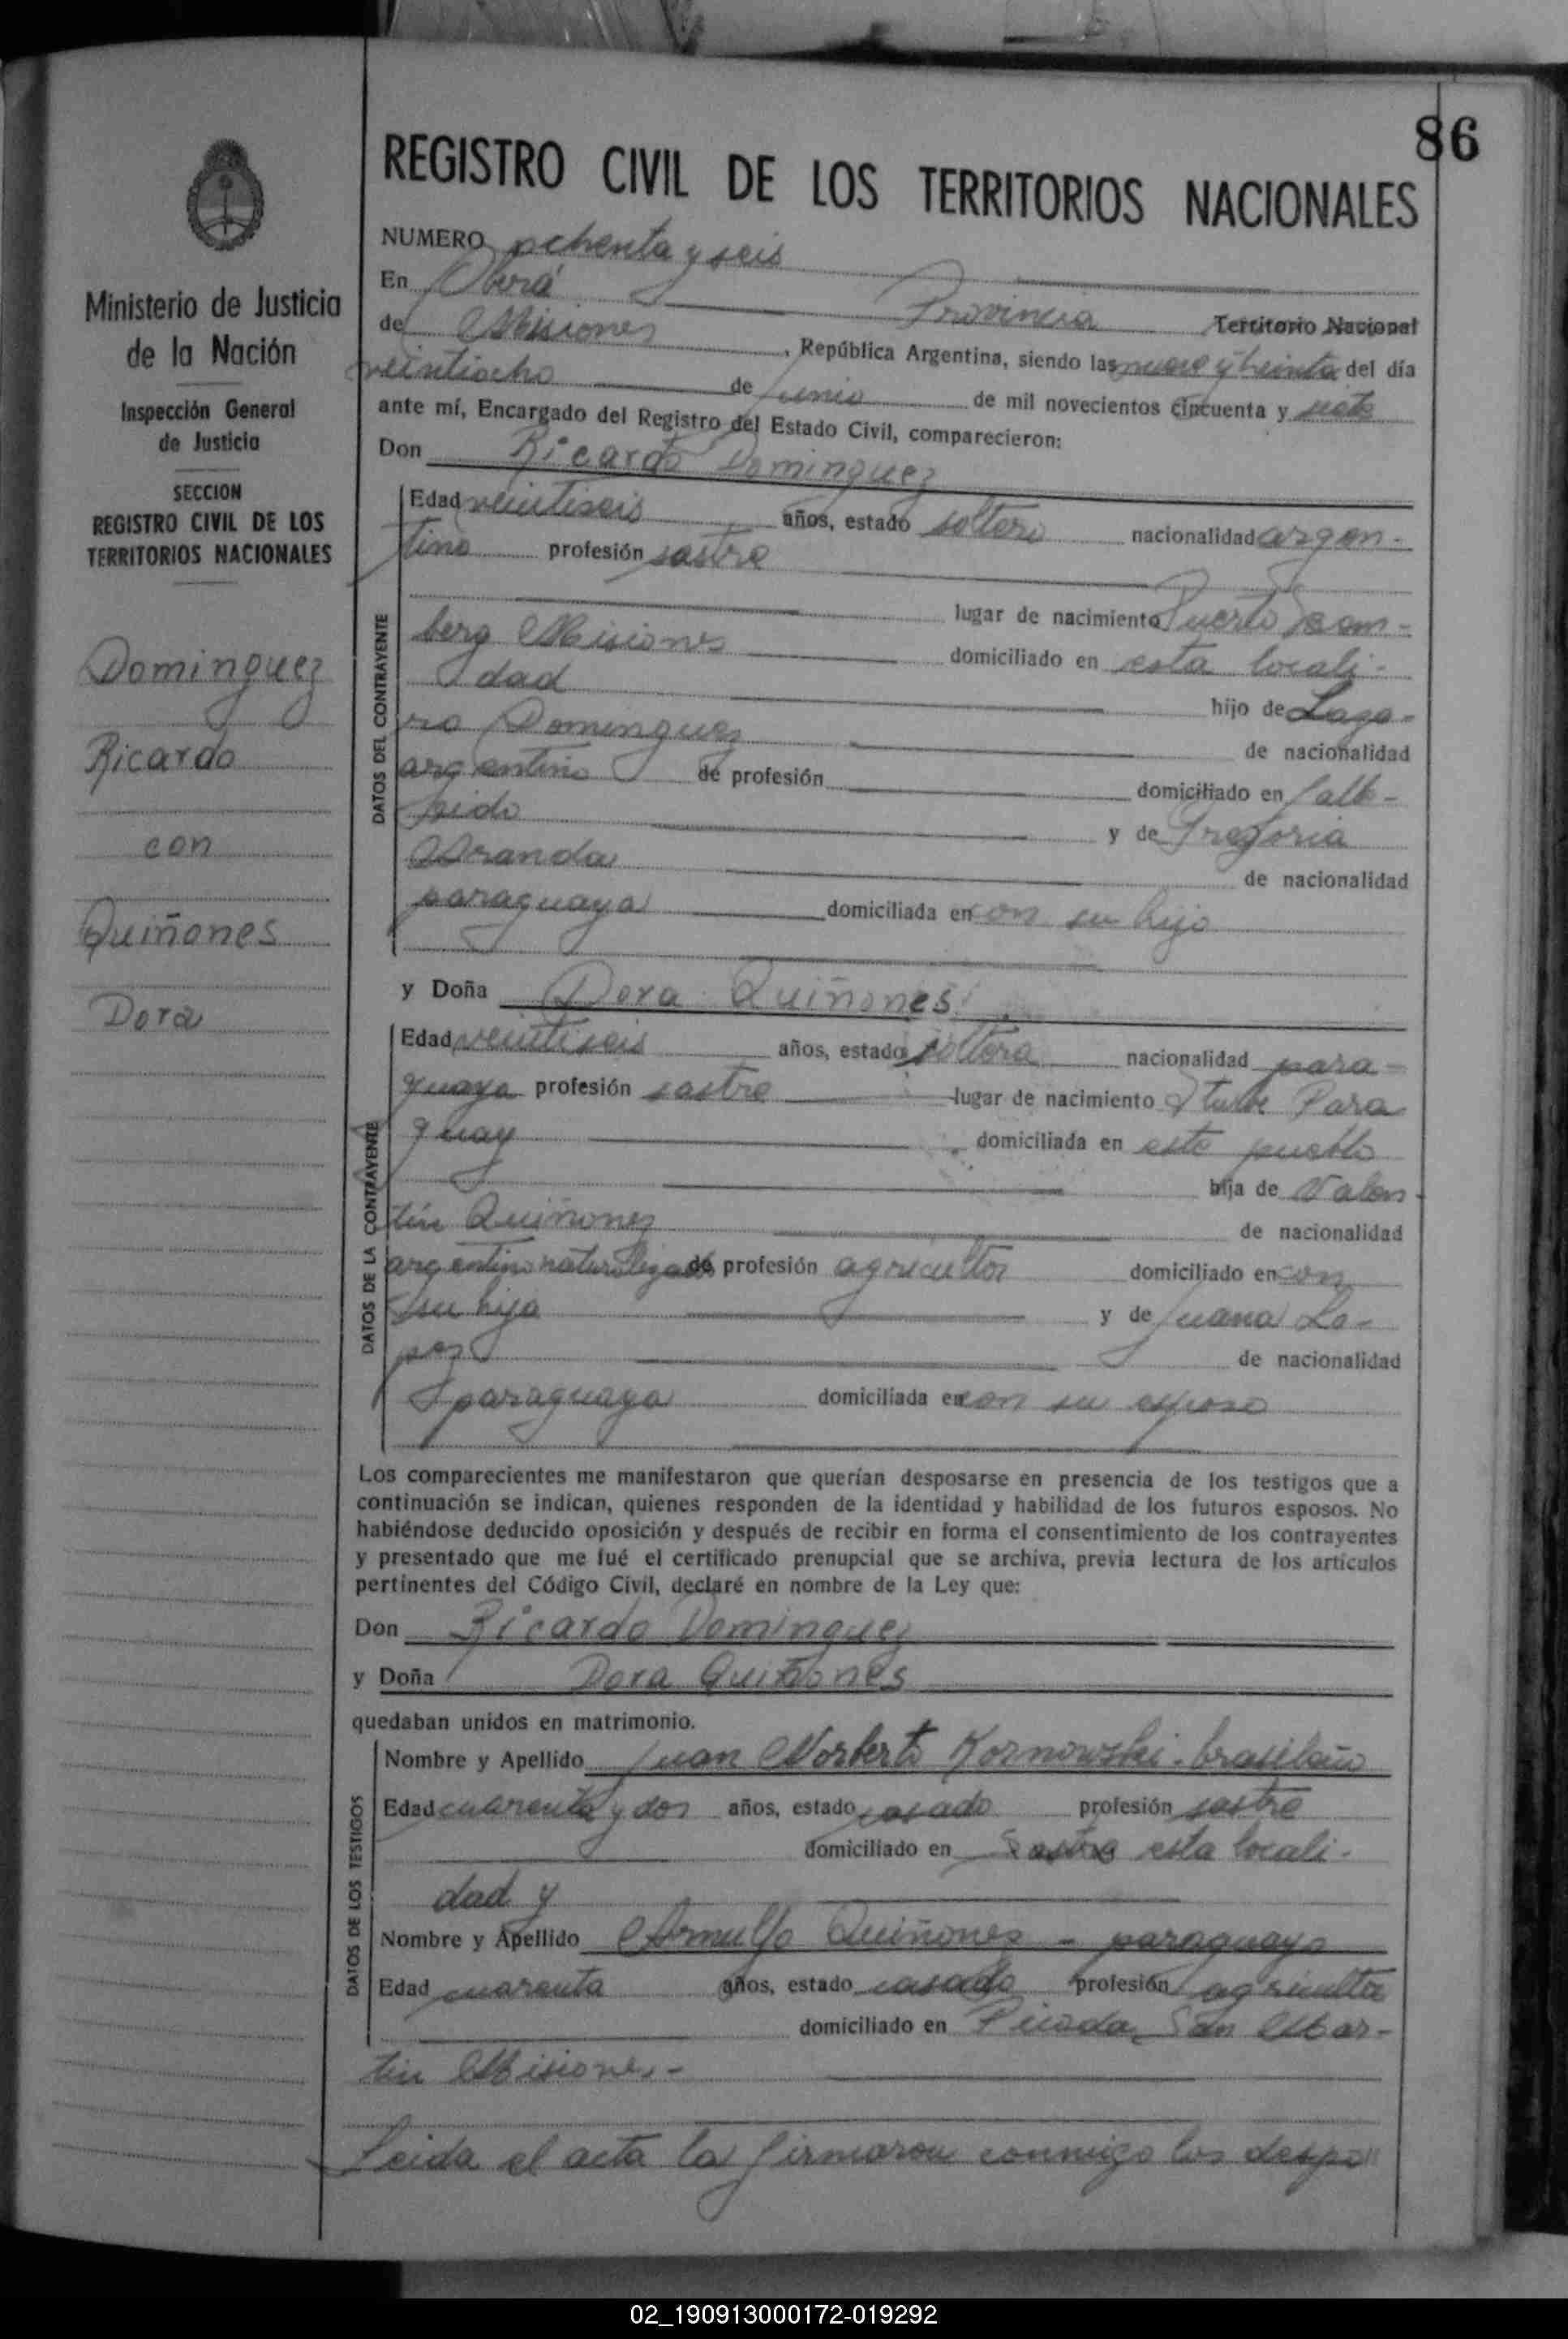 86
REGISTRO CIVIL DE LOS TERRITORIOS NACIONALES
Ministerio de Justicia
de la Nación
Inspección General
de Justicia
SECCION
REGISTRO CIVIL DE LOS
TERRITORIOS NACIONALES
Dominguez
Ricardo
con
Quiñones
Dora
NUMERO ochenta y seis
En Oberá Provincia Territorio Nacional
de Misiones, República Argentina, siendo las nueve y treinta del día
veintiocho de Junio de mil novecientos cincuenta y siete
ante mí, Encargado del Registro del Estado Civil, comparecieron:
Don Ricardo Dominguez
DATOS DEL CONTRAYENTE
Edad veintiseis años, estado soltero nacionalidad argen-
tino profesión sastre
lugar de nacimiento Puerto Bem-
berg Misiones domiciliado en esta locali-
dad hijo de
ro Dominguez de nacionalidad
argentino de profesión domiciliado en falle-
cido y de Gregoria
Aranda de nacionalidad
paraguaya domiciliada en con su hijo
y Doña Dora Quiñones
DATOS DE LA CONTRAYENTE
Edad veintiseis años, estado soltera nacionalidad para-
guaya profesión sastre lugar de nacimiento Para
guay domiciliada en este pueblo
hija de Valen-
tín Quiñones de nacionalidad
argentino naturalizado de profesión agricultor domiciliado en con
su hija y de Juana Lo-
pez de nacionalidad
paraguaya domiciliada en con su esposo
Los comparecientes me manifestaron que querían desposarse en presencia de los testigos que a
continuación se indican, quienes responden de la identidad y habilidad de los futuros esposos. No
habiéndose deducido oposición y después de recibir en forma el consentimiento de los contrayentes
y presentado que me fué el certificado prenupcial que se archiva, previa lectura de los artículos
pertinentes del Código Civil, declaré en nombre de la Ley que:
Don Ricardo Dominguez
y Doña Dora Quiñones
quedaban unidos en matrimonio.
DATOS DE LOS TESTIGOS
Nombre y Apellido Juan Norberto Kornowski - brasileño
Edad cuarenta y dos años, estado casado profesión sastre
domiciliado en Sastre esta locali-
dad y
Nombre y Apellido Arnulfo Quiñones - paraguayo
Edad cuarenta años, estado casado profesión agriculto
domiciliado en Picada San Mar-
tin Misiones.-
Leida el acta la firmaron conmigo los despo"
02_190913000172-019292